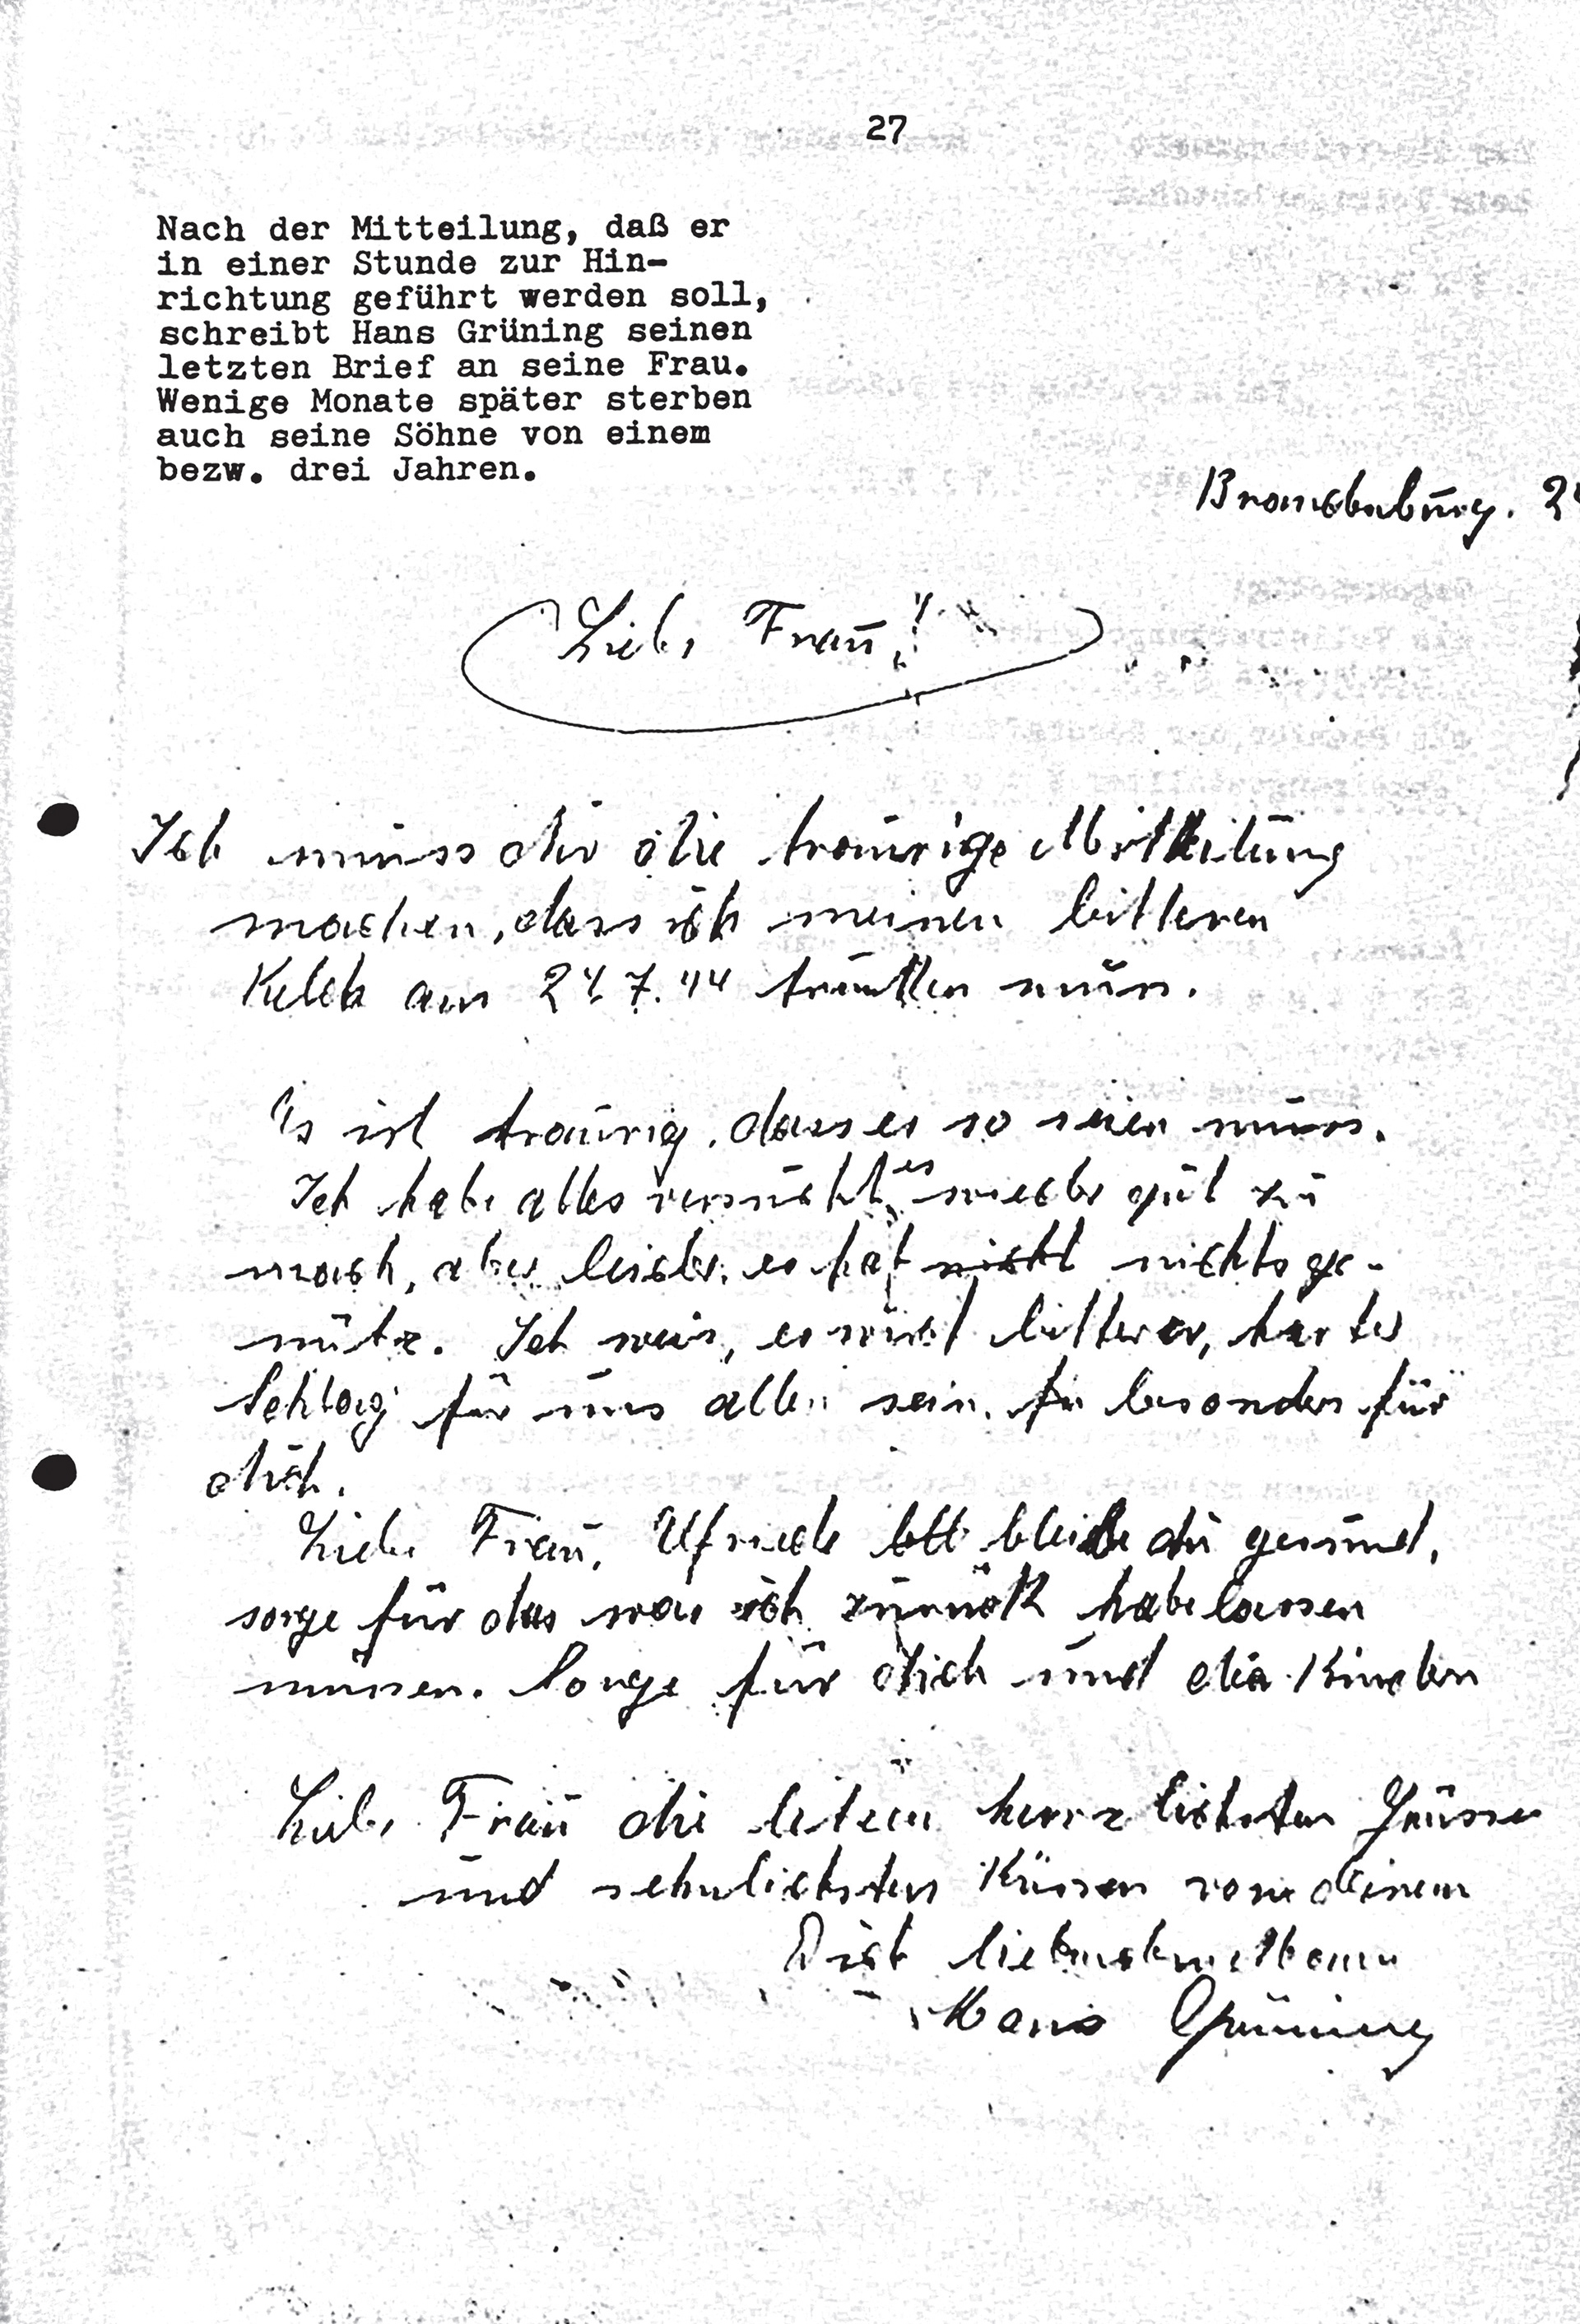 27
Nach der Mitteilung, daß er
in einer Stunde zur Hin-
richtung geführt werden soll,
schreibt Hans Grüning seinen
letzten Brief an seine Frau.
Wenige Monate später sterben
auch seine Söhne von einem
bezw. drei Jahren.
Brandenburg. 24
Liebe Frau!
Ich muss dir die traurige Mitteilung
machen, dass ich meinen bitteren
Kelch am 24.7.44 trinken muss.
Es ist traurig, dass es so seien muss.
Ich habe alles versucht es wieder gut zu
mach, aber leider, es hat nicht nichts ge-
nütz. Ich weis, es wird bitterer, harter
Schlag für uns allen sein, für besonders für
dich.
Liebe Frau, bleibe du gesund,
sorge für das was ich zurück habe lassen
müssen. Sorge für dich und die Kinder
Liebe Frau die herzlichsten Grüsse
und sehnlichsten Küssen von deinem
Dich
Hans Grüning